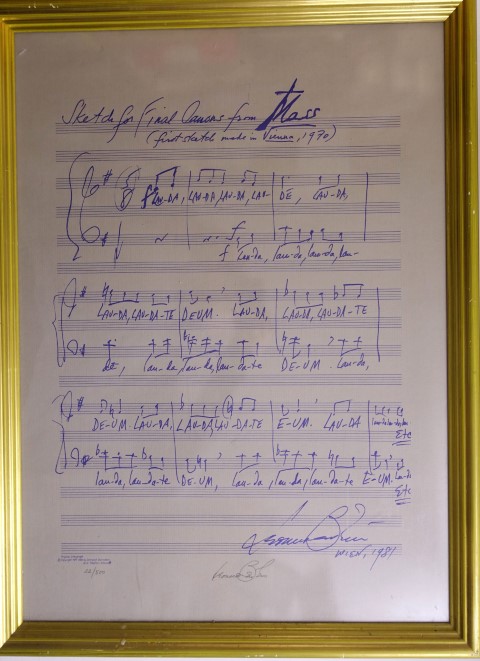 Sketch for Final Canons from Mass
(first sketch made in Vienna, 1970)
f LAU-DA, LAU-DA, LAU-DA, LAU- DE, LAU-DA,
f Lau-da, lau-da, lau-da, lau-
LAU-DA, LAU-DA-TE DEUM. LAU-DA, LAU-DA, LAU-DA-TE
de, lau-da, lau-da, lau-da-te DE-UM. Lau-da,
DE-UM. LAU-DA, LAU-DA, LAU-DA-TE E-UM. LAU-DA
Etc
lau-da, lau-da-te DE-UM, Lau-da, lau-da, lau-da-te E-UM.
Etc
WIEN, 1981